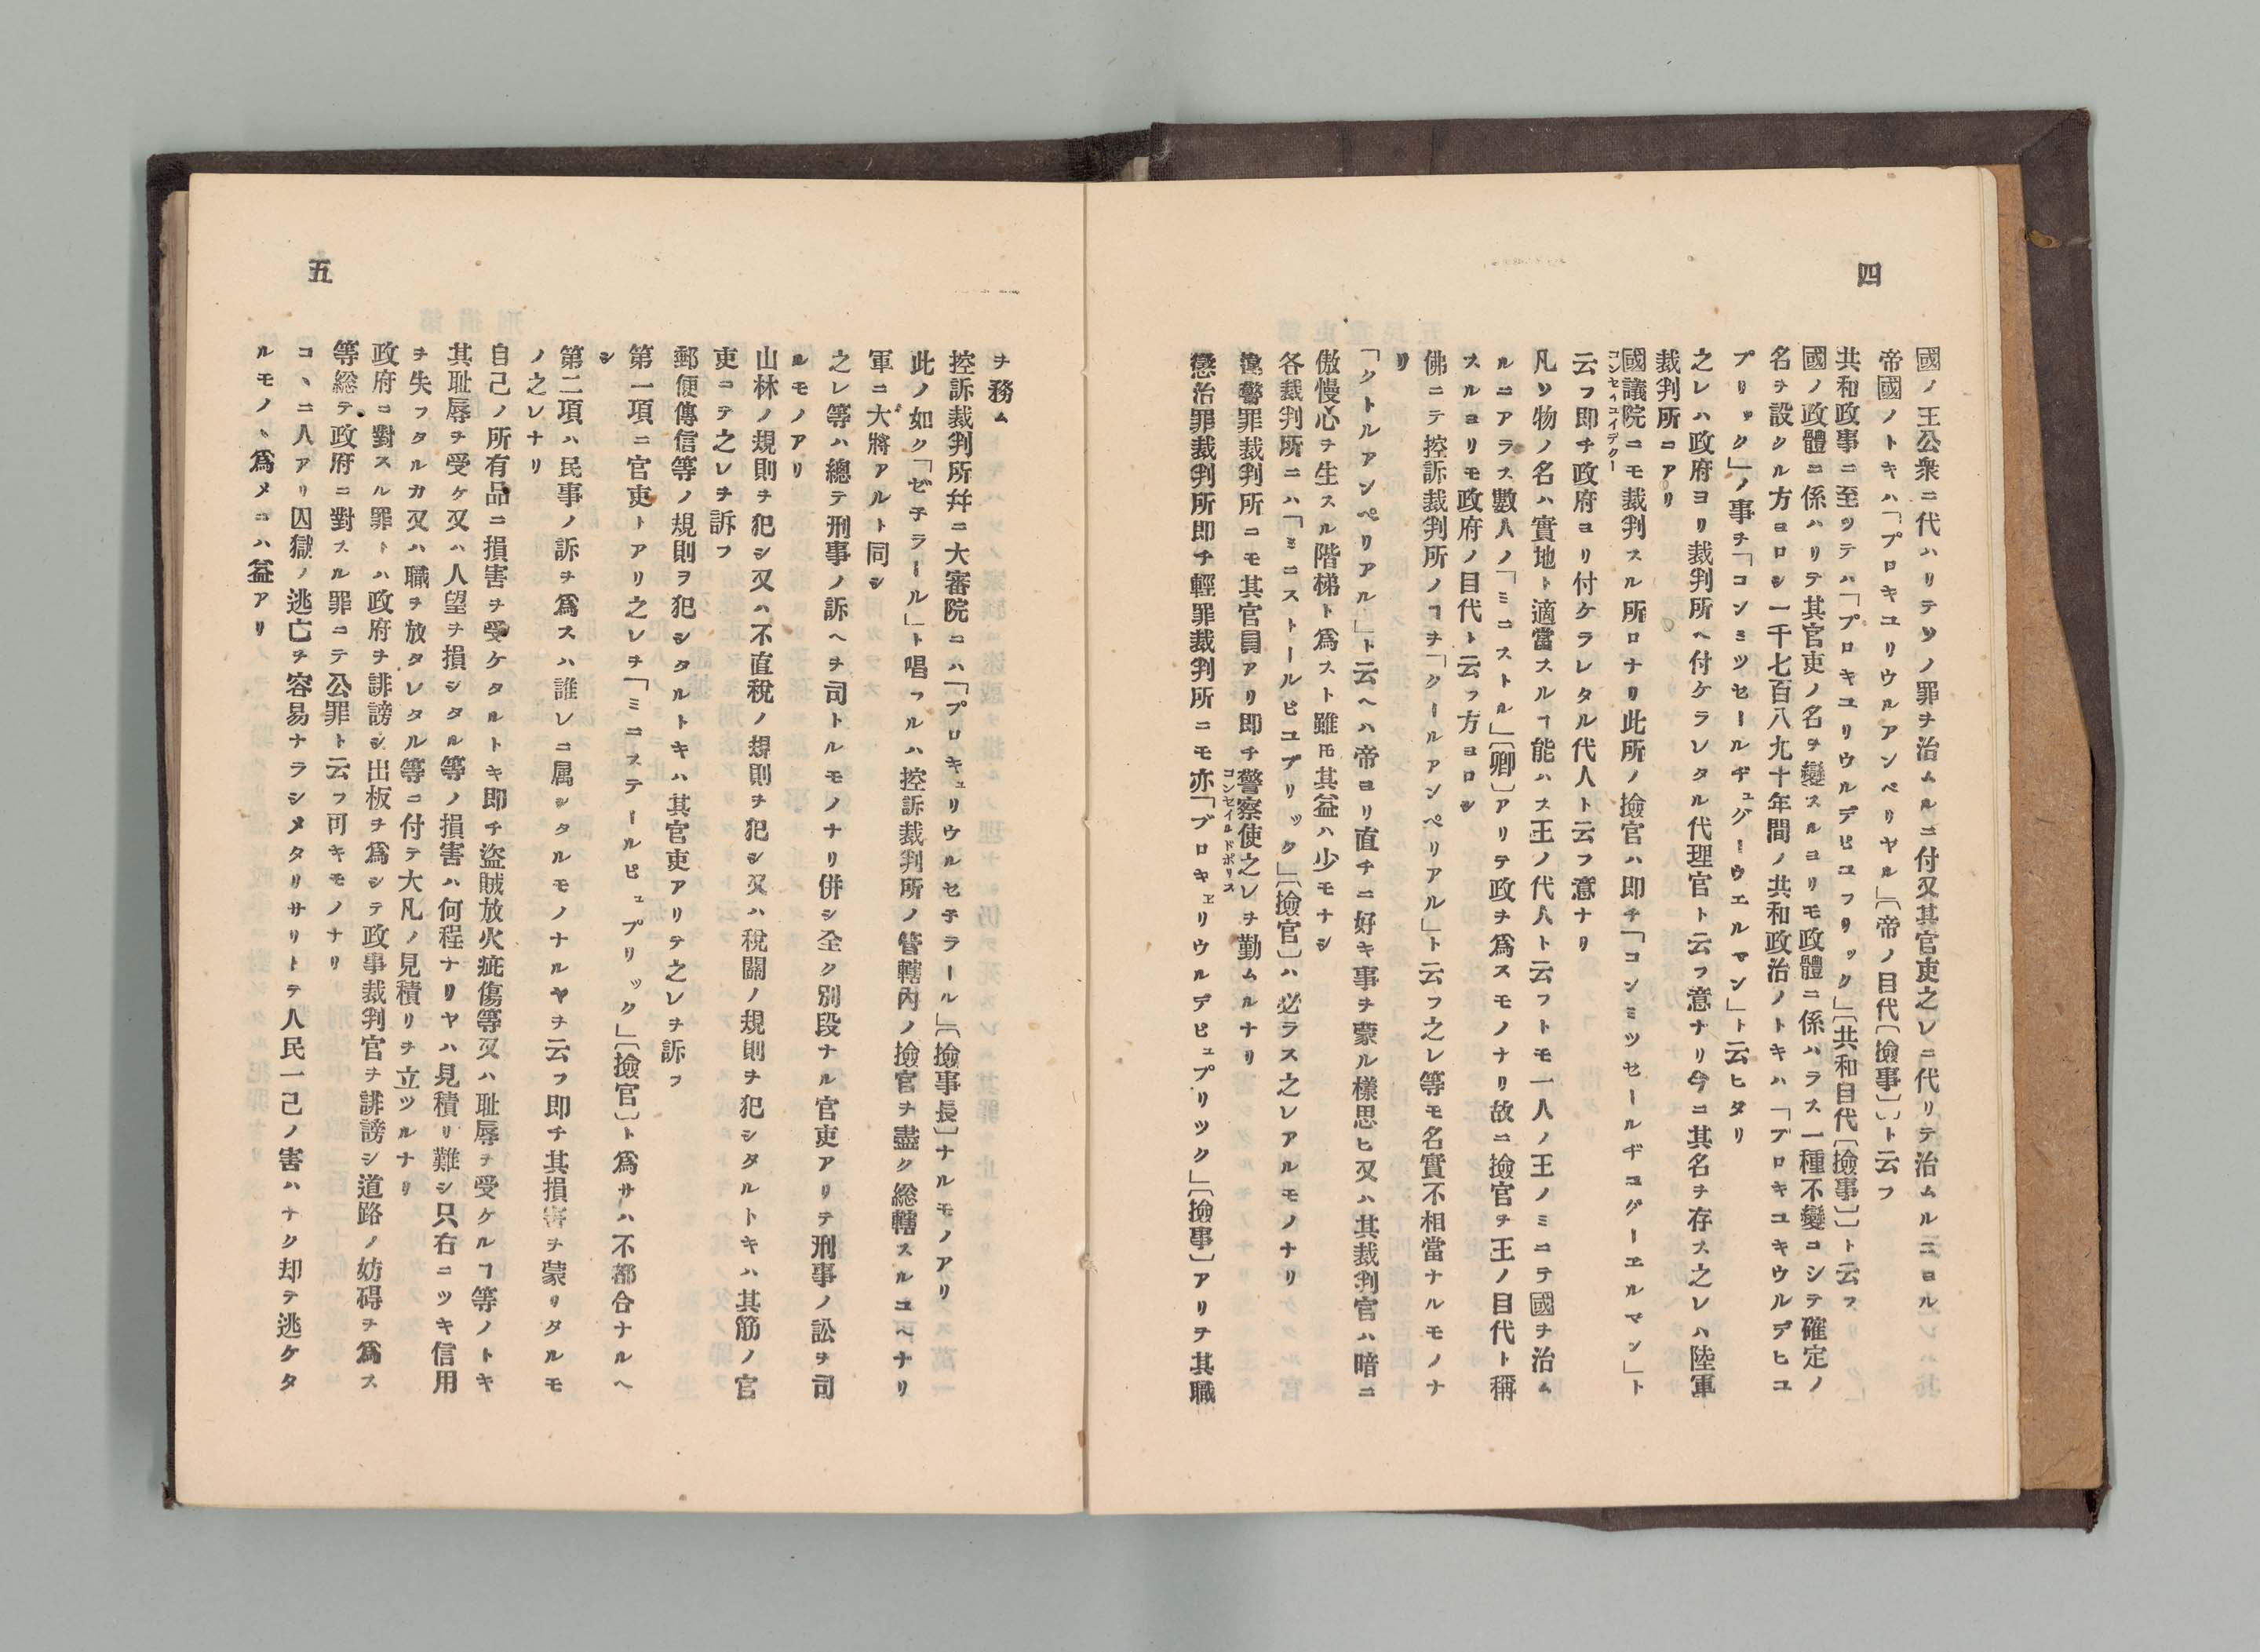 四
國ノ王公衆ニ代ハリテソノ罪ヲ治ムルニ付又其官吏之レニ代リテ治ムルニヨル
帝國ノトキハ「プロキユリウルアンペリヤル」〔帝ノ目代〔撿事〕〕ト云フ
共和政事ニ至ツテハ「プロキユリウルデピユフリック」〔共和目代〔撿事〕〕ト云フ
國ノ政體ニ係ハリテ其官吏ノ名ヲ變スルヨリモ政體ニ係ハラス一種不變ニシテ確定ノ
名ヲ設クル方ヨロシ一千七百八九十年間ノ共和政治ノトキハ「プロキユキウルデヒユ
プリック」ノ事ヲ「コンミツセールヂュグーウエルマン」ト云ヒタリ
之レハ政府ヨリ裁判所ヘ付ケラレタル代理官ト云フ意ナリ今ニ其名ヲ存ス之レハ陸軍
裁判所ニアリ
國議院ニモ裁判スル所ロナリ此所ノ撿官ハ即チ「コンミツセールヂユグーエルマン」ト
コンセイユイデター
云フ即チ政府ヨリ付ケラレタル代人ト云フ意ナリ
凡ソ物ノ名ハ實地ト適當スルヿ能ハス王ノ代人ト云フトモ一人ノ王ノミニテ國ヲ治ム
ルニアラス數人ノ「ミニストル」〔卿〕アリテ政ヲ爲スモノナリ故ニ撿官ヲ王ノ目代ト稱
スルヨリモ政府ノ目代ト云フ方ヨロシ
佛ニテ控訴裁判所ノヿヲ「クールアンペリアル」ト云フ之レ等モ名實不相當ナルモノナ
リ
「クトルアンペリアル」ト云ヘハ帝ヨリ直チニ好キ事ヲ蒙ル樣思ヒ又ハ其裁判官ハ暗ニ
傲慢心ヲ生スル階梯ト爲スト雖𪜈其益ハ少モナシ
各裁判所ニハ「ミニストールピユブリック」〔撿官〕ハ必ラス之レアルモノナリ
違警罪裁判所ニモ其官員アリ即チ警察使之レヲ勤ムルナリ
コンセイルドポリス
懲治罪裁判所即チ輕罪裁判所ニモ亦「プロキェリウルデピュプリック」〔撿事〕アリテ其職
五
ヲ務ム
控訴裁判所幷ニ大審院ニハ「プロキュリウルセチラール」〔撿事長〕ナルモノアリ
此ノ如ク「ゼ子ラール」ト唱フルハ控訴裁判所ノ管轄內ノ撿官ヲ盡ク総轄スルユヘナリ
軍ニ大將アルト同シ
之レ等ハ總テ刑事ノ訴ヘヲ司トルモノナリ併シ全ク別段ナル官吏アリテ刑事ノ訟ヲ司
ルモノアリ
山林ノ規則ヲ犯シ又ハ不直稅ノ規則ヲ犯シ又ハ稅關ノ規則ヲ犯シタルトキハ其筋ノ官
吏ニテ之レヲ訴フ
郵便傳信等ノ規則ヲ犯シタルトキハ其官吏アリテ之レヲ訴フ
第一項ニ官吏トアリ之レヲ「ミニステールピュプリック」〔撿官〕ト爲サハ不都合ナルヘ
シ
第二項ハ民事ノ訴ヲ爲スハ誰レニ属シタルモノナルヤヲ云フ即チ其損害ヲ蒙リタルモ
ノ之レナリ
自己ノ所有品ニ損害ヲ受ケタルトキ即チ盜賊放火疵傷等又ハ耻辱ヲ受ケルヿ等ノトキ
其耻辱ヲ受ケ又ハ人望ヲ損シタル等ノ損害ハ何程ナリヤハ見積リ難シ只右ニツキ信用
ヲ失フタルカ又ハ職ヲ放タレタル等ニ付テ大凡ノ見積リヲ立ツルナリ
政府ニ對スル罪トハ政府ヲ誹謗シ出板ヲ爲シテ政事裁判官ヲ誹謗シ道路ノ妨碍ヲ爲ス
等総テ政府ニ對スル罪ニテ公罪ト云フ可キモノナリ
コヽニ人アリ囚獄ノ逃亡ヲ容易ナラシメタリサリトテ人民一己ノ害ハナク却テ逃ケタ
ルモノヽ爲メニハ益アリ